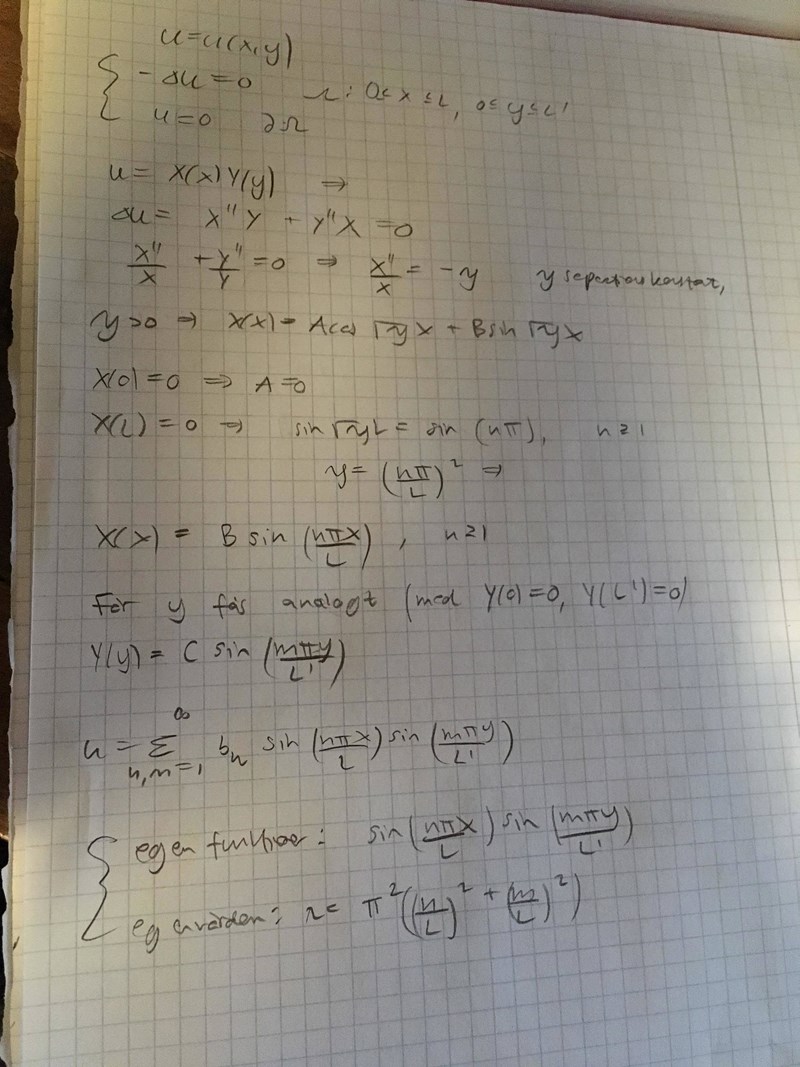 u = u(x,y)
{ -Δu = 0    Ω: 0≤ x ≤ L, 0≤ y ≤ L'
u = 0    ∂Ω
u = X(x) Y(y) ⇒
Δu = X''Y + Y''X = 0
X''/X + Y''/Y = 0 ⇒ X''/X = -γ    γ
γ>0 ⇒ X(x) = A cos √γ x + B sin √γ x
X(0) = 0 ⇒ A = 0
X(L) = 0 ⇒ sin √γ L = sin (nπ), n ≥ 1
γ = (nπ/L)² ⇒
X(x) = B sin (nπx/L), n ≥ 1
För y fås analogt (med Y(0) = 0, Y(L') = 0)
Y(y) = C sin (mπy/L')
u = Σ^∞_{n,m=1} b_n sin (nπx/L) sin (mπy/L')
{ egenfunktioner: sin (nπx/L) sin (mπy/L')
egenvärden: = π² ((n/L)² + (m/L)²)